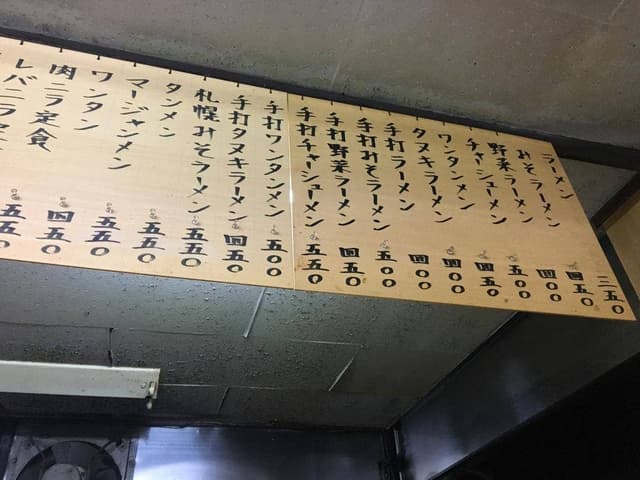 ラーメン 三五〇
みそラーメン 四五〇
野菜ラーメン 四〇〇
チャーシューメン 五〇〇
ワンタンメン 四五〇
タヌキラーメン 四〇〇
手打ラーメン 四〇〇
手打みそラーメン 五〇〇
手打野菜ラーメン 四五〇
手打チャーシューメン 五五〇
手打ワンタンメン 五〇〇
手打タヌキラーメン 四五〇
札幌みそラーメン 五五〇
タンメン 五五〇
マージャンメン 五五〇
ワンタン 四五〇
肉ニラ定食 五五〇
レバニラ定